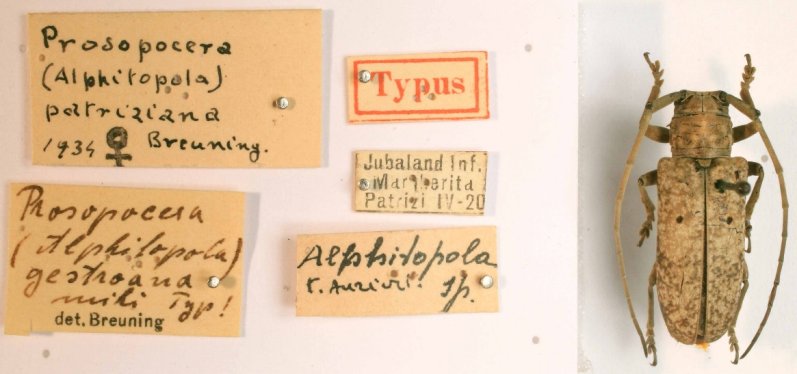 Prosopocera
(Alphitopola)
patriziana
1934 ♀ Breuning.
Typus
Jubaland Inf.
Margherita
Patrizi IV-20
Prosopocera
(Alphitopola)
gestroana
mihi Typ!
det. Breuning
Alphitopola
sp.